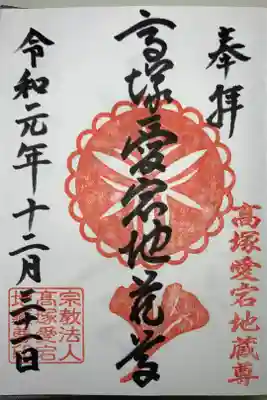 奉拝
高塚愛宕地蔵尊
高塚愛宕地蔵尊
令和元年十二月三十一日
宗教法人
高塚愛宕